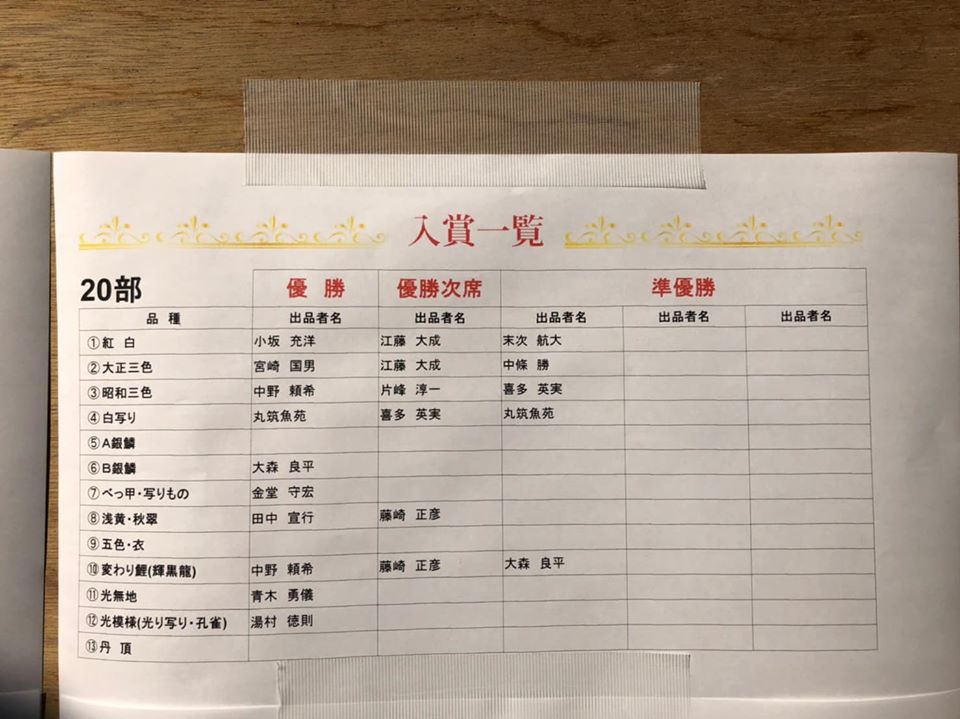 入賞一覧
20部 優勝 優勝次席 準優勝
品種 出品者名 出品者名 出品者名 出品者名 出品者名
①紅白 小坂 充洋 江藤 大成 末次 航大
②大正三色 宮崎 国男 江藤 大成 中條 勝
③昭和三色 中野 頼希 片峰 淳一 喜多 英実
④白写り 丸筑魚苑 喜多 英実 丸筑魚苑
⑤A銀鱗
⑥B銀鱗 大森 良平
⑦べっ甲・写りもの 金堂 守宏
⑧浅黄・秋翠 田中 宣行 藤崎 正彦
⑨五色・衣
⑩変わり鯉(輝黒龍) 中野 頼希 藤崎 正彦 大森 良平
⑪光無地 青木 勇儀
⑫光模様(光り写り・孔雀) 湯村 徳則
⑬丹頂